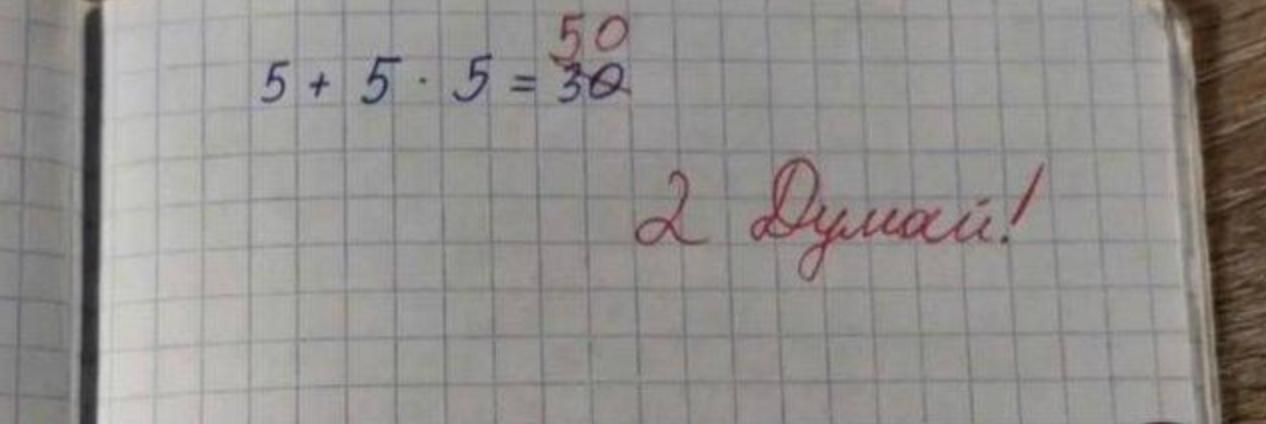 50
5 + 5 · 5 = 30
2 Думай!